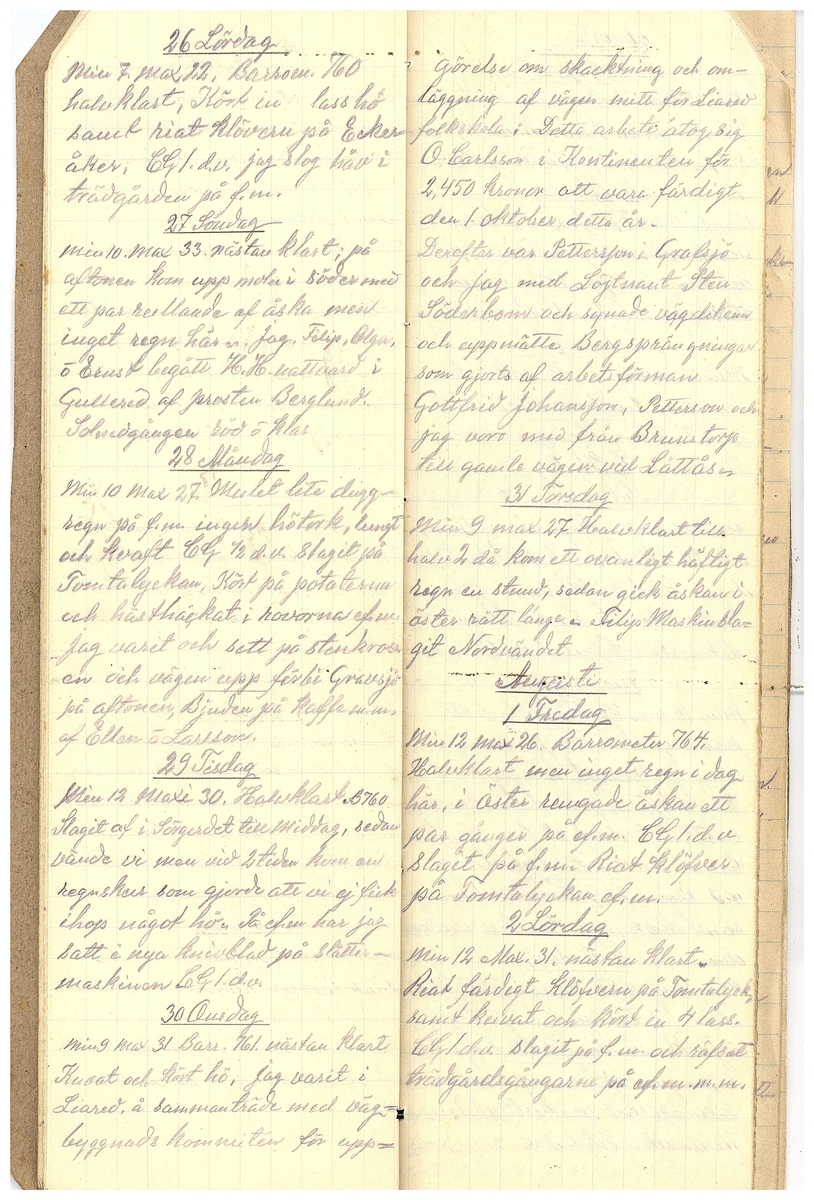 26 Lördag
Min 7. max 22. Barrom. 760
halvklart, Kört in lass hö
samt riat klövern på Ecker
åker, CG 1. d.v. jag slog häv i
trädgården på f.m.
27 Söndag
min 10. max 33. nästan klart; på
aftonen kom upp moln i söder med
ett par rullande af åska men
inget regn här. jag, Filip, Olga,
ö Ernst begått H.H. nattvard i
Gullered af prosten Berglund.
Solnedgången röd ö klar
28 Måndag
Min 10 max 27. Mulet lite dugg-
regn på f.m. ingen hötork, lungt
och kvaft CG 1/2 d.v. Slagit på
Tomtalyckan, Kört på potaterna
och hästhackat i rovorna ef.m.
Jag varit och sett på stenkross
en och vägen upp förbi Gravsjö
på aftonen, Bjuden på kaffe m.m.
af Ellen ö Larsson.
29 Tisdag
Min 12 Maxi 30. Halvklart. B760
Slagit af i Sörgerdet till middag, sedan
vände vi men vid 2 tiden kom en
regnskur som gjorde att vi ej fick
ihop något hö. På ef.m har jag
satt i nya knivblad på slåtter-
maskinen CG 1. d.v.
30 Onsdag
min 9 max 31 Barr. 761. nästan klart
Kuvat och kört hö, jag varit i
Liared, å sammanträde med väg=
byggnads kommiten för upp=
görelse om skacktning och om-
läggning af vägen mitt för Liared
folkskola; Detta arbete åtog sig
O. Carlsson i Kontinenten för
2,450 kronor att vara färdigt
den 1. oktober detta år.
Derefter var Pettersson i Grafsjö
och jag med Löjtnant Sten
Söderbom och synade vägdikena
och uppmätte Bergsprängningar
som gjorts af arbetsförman
Gottfrid Johansson, Petterson och
jag voro med från Brunstorp
till gamle vägen vid Låttås
31 Torsdag
Min 9 max 27. Halvklart till
halv 2 då kom ett ovanligt häftigt
regn en stund, sedan gick åskan i
öster rätt länge. Filip Maskinsla=
git Nordvändet
Augusti
1 Fredag
Min 12 max 26. Barrometer 764.
Halvklart men inget regn i dag
här, i Öster rungade åskan ett
par gånger på ef.m. CG 1. d.v
slaget på f.m. Riat klöfver
på Tomtalyckan ef.m.
2 Lördag
min 12 Max. 31. nästan klart
Riat färdigt klöfvern på Tomtalyck,
samt kuvat och kört in 4 lass.
CG 1 d.v slagit på f.m. och räfsat
trädgårdsgångarne på ef.m. m.m.